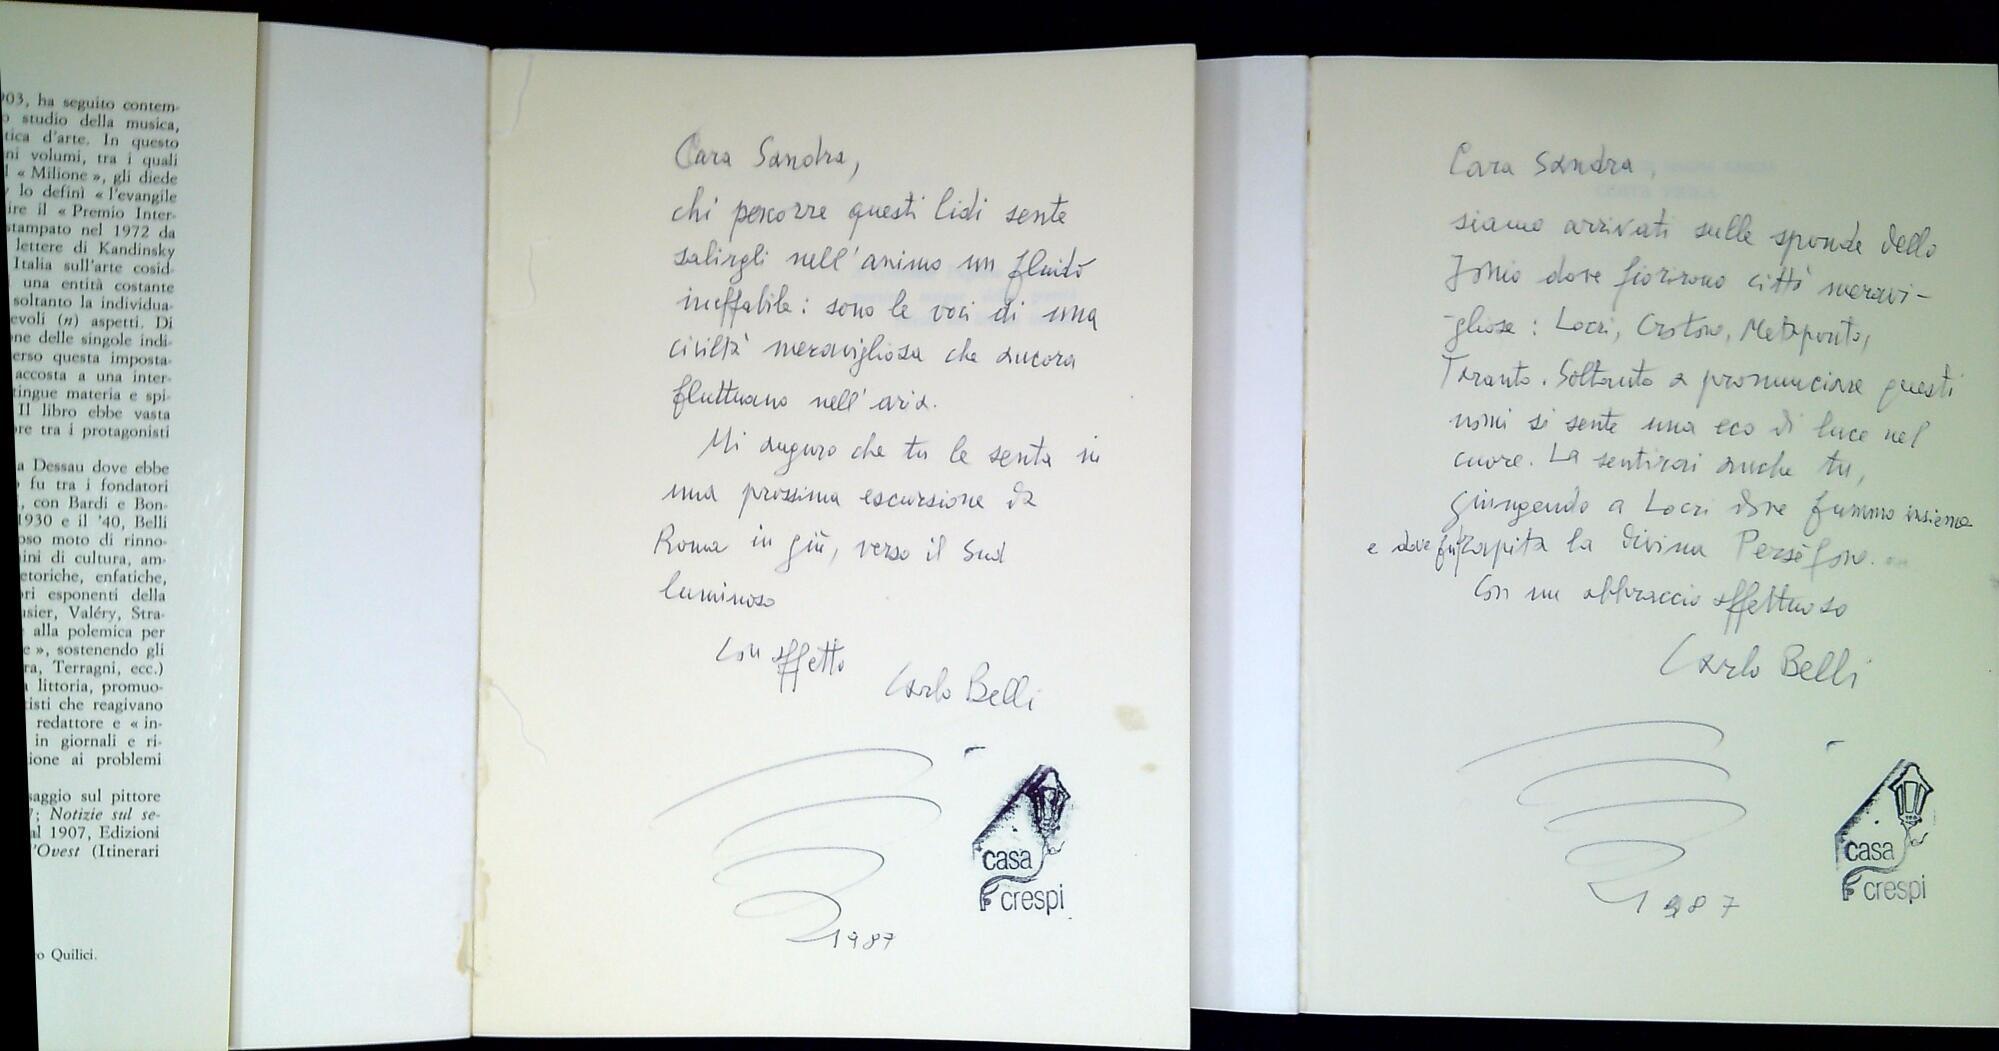 903, ha seguito contem-
o studio della musica,
tica d'arte. In questo
ni volumi, tra i quali
l « Milione », gli diede
lo definì « l'evangile
ire il « Premio Inter-
stampato nel 1972 da
lettere di Kandinsky
Italia sull'arte cosid-
una entità costante
soltanto la individua-
evoli (n) aspetti. Di
ne delle singole indi-
erso questa imposta-
accosta a una inter-
tingue materia e spi-
Il libro ebbe vasta
re tra i protagonisti
a Dessau dove ebbe
fu tra i fondatori
, con Bardi e Bon-
1930 e il '40, Belli
oso moto di rinno-
ini di cultura, am-
etoriche, enfatiche,
ri esponenti della
usier, Valéry, Stra-
alla polemica per
e », sostenendo gli
ra, Terragni, ecc.)
littoria, promuo-
isti che reagivano
redattore e « in-
in giornali e ri-
ione ai problemi
saggio sul pittore
7; Notizie sul se-
al 1907, Edizioni
'Ovest (Itinerari
o Quilici.
Cara Sandra,
chi percorre questi lidi sente
salirgli nell'animo un fluido
ineffabile: sono le voci di una
civiltà meravigliosa che ancora
fluttuano nell'aria.
Mi auguro che tu le senta in
una prossima escursione da
Roma in giù, verso il Sud
luminoso
Con affetto
Carlo Belli
1987
casa
crespi
Cara Sandra,
siamo arrivati sulle sponde dello
Jonio dove fiorirono città meravi-
gliose: Locri, Crotone, Metaponto,
Taranto. Soltanto a pronunciare questi
nomi si sente una eco di luce nel
cuore. La sentirai anche tu,
giungendo a Locri dove fummo insieme
e dove fu rapita la divina Persèfone.
Con un abbraccio affettuoso
Carlo Belli
1987
casa
crespi